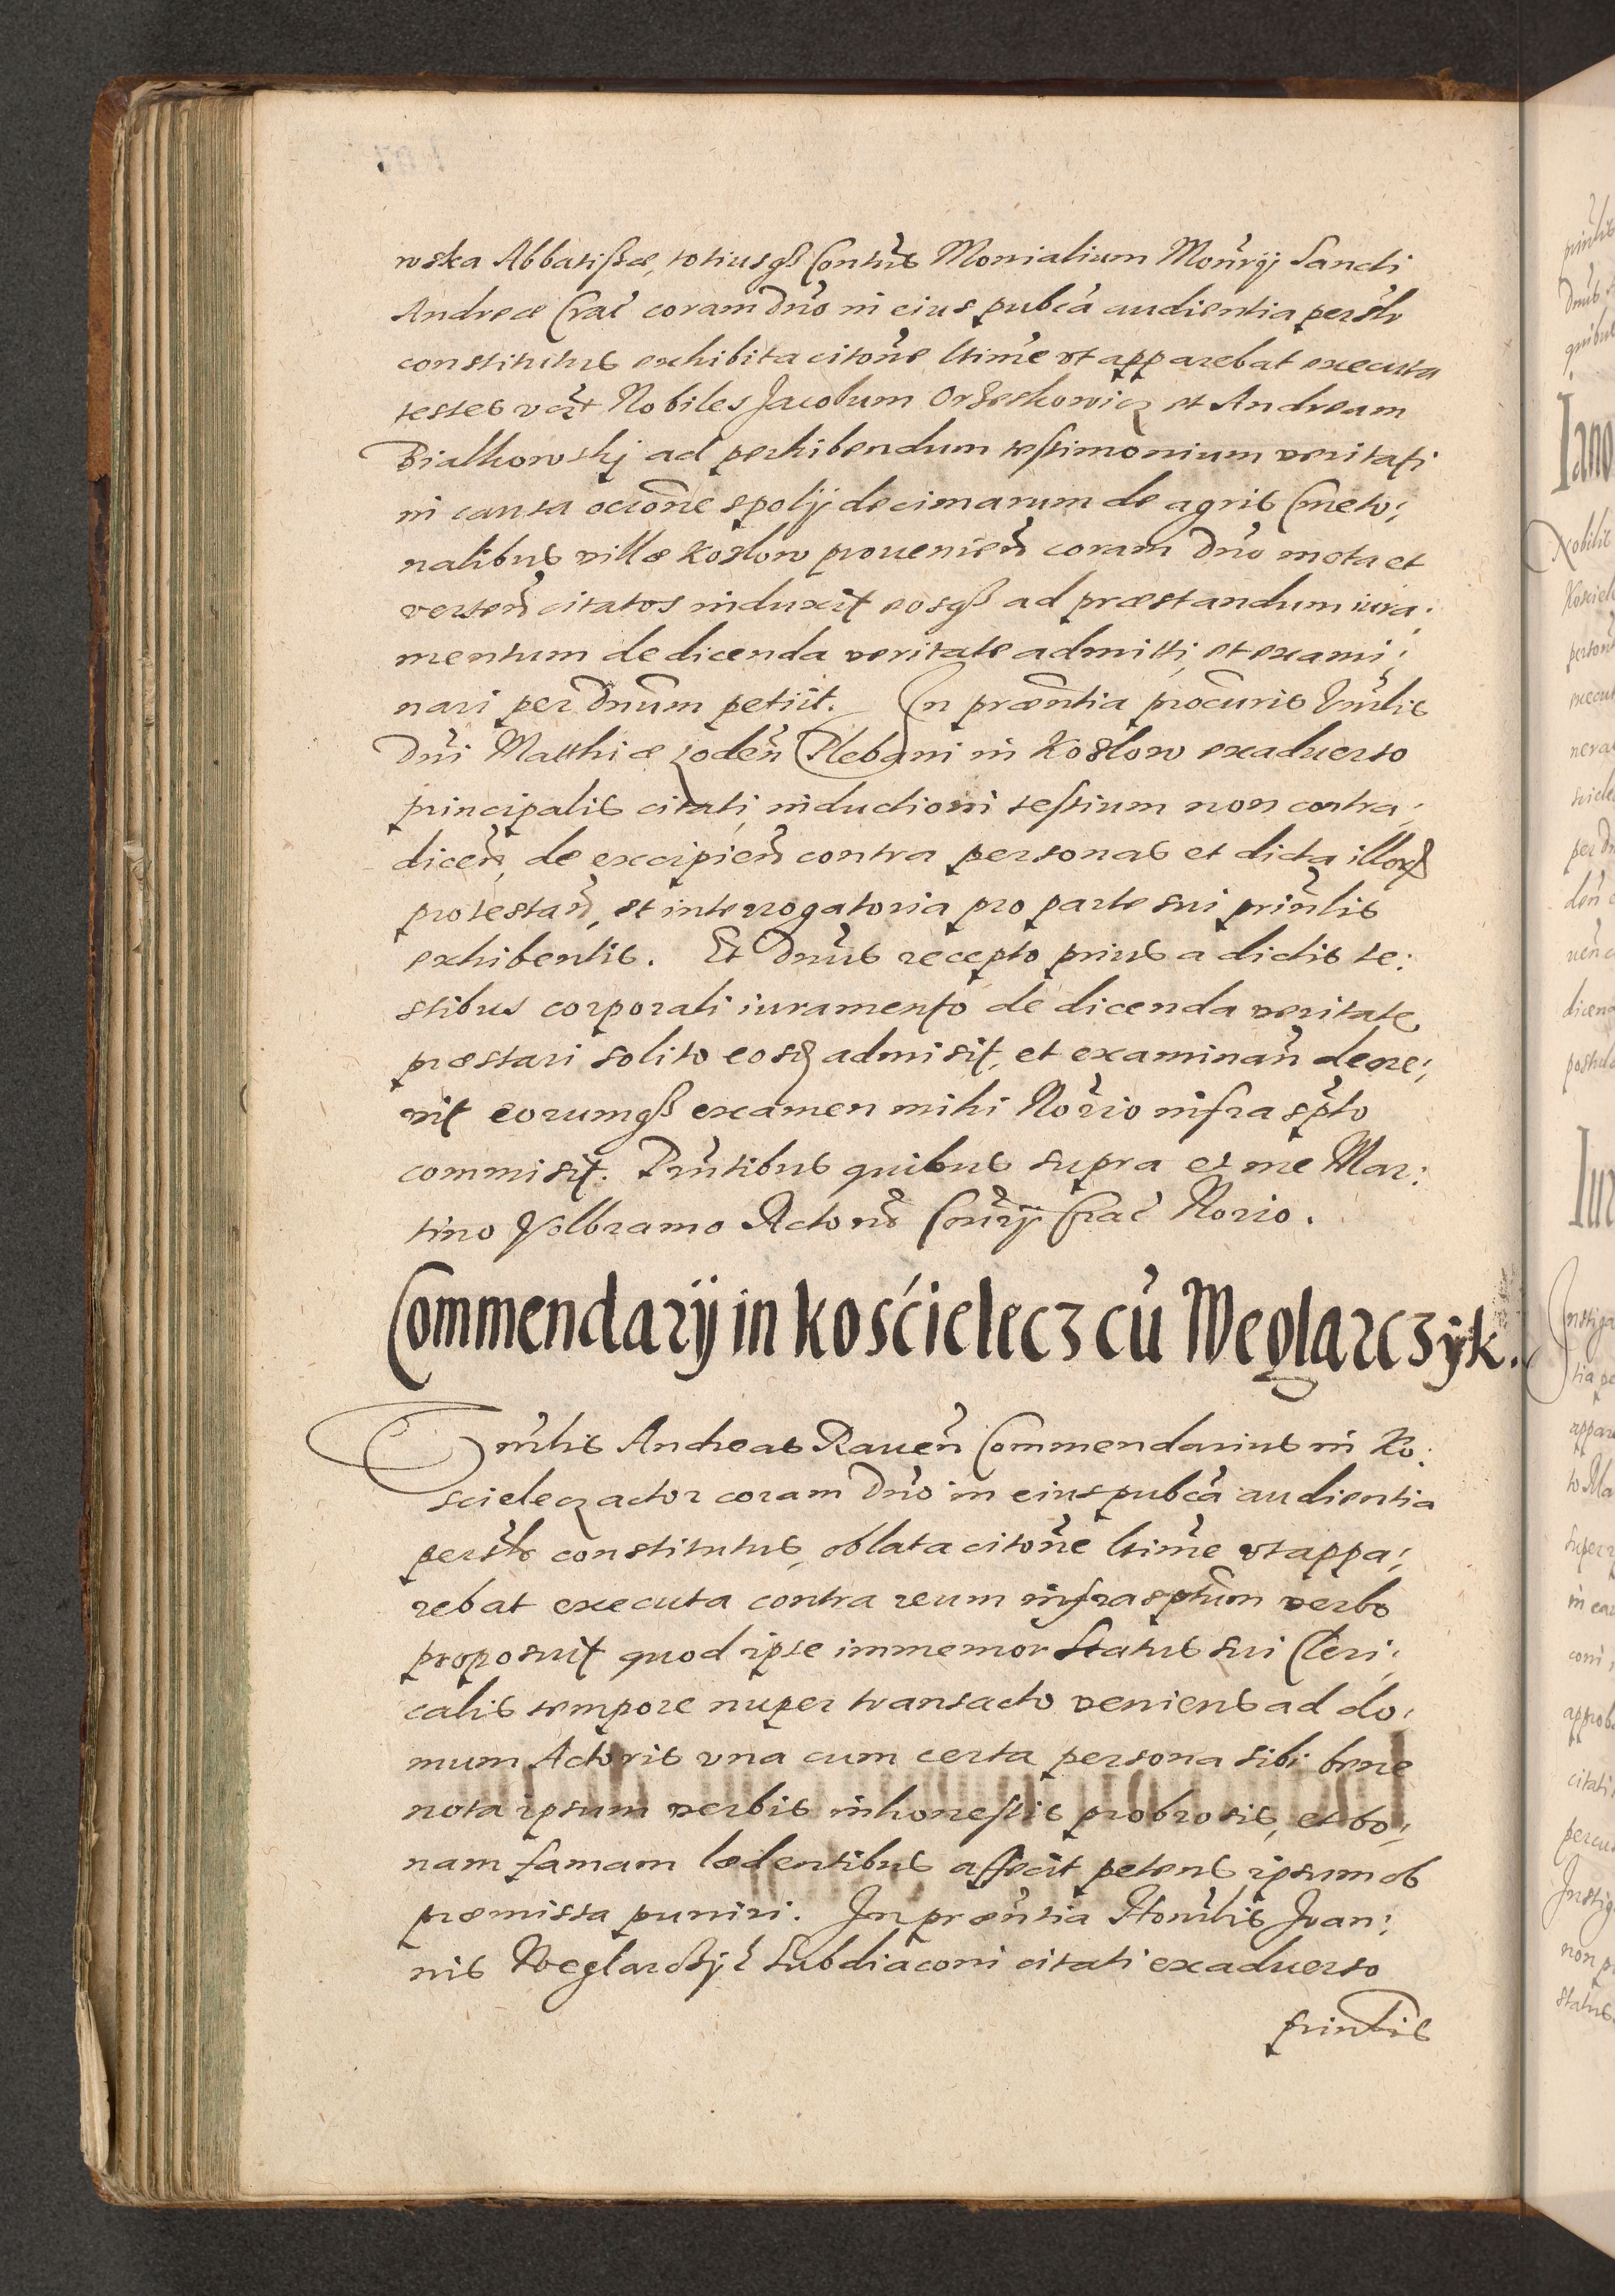 wska Abbatissæ, totiusq3 Contus Monialium Monrij Sancti
Andreæ Crac coram Dno in eius pubca audientia persolr
constitutus exhibita citone ltime vt apparebat executa
testes vczt Nobiles Jacobum Orzeskowicz et Andream
Bialkowskj ad perhibendum testimonium veritati
in causa occone spolij decimarum de agris Cmeto:
nalibus villæ Kozlow prouenien coram Dno mota et
verten citatos induxit eosq3 ad præstandum iura:
mentum de dicenda veritate admitti, et exami:
nari per Dnum petiit. In præntia procuris Vnrlis
Dni Matthiæ Plebani in Kozlow exaduerso
principalis citati, inductioni testium non contra:
dicen, de excipien contra personas et dicta illorum
protestan, et interrogatoria pro parte sui prinlis
exhibentis. Et Dnus recepto prius a dictis te:
stibus corporali iuramento de dicenda veritate
præstari solito eosq3 admisit, et examinan decre:
uit eorumq3 examen mihi Norio infra spto
commisit. Pntibus quibus supra et me Mar:
tino Volbramo Actorum Consrij Crac Norio.
Commendarij in kościelecz cu Węglarczyk.
Vnrlis Andreas Rauen Commendarius in Ko:
scielecz actor coram Dno in eius pubca audientia
persolr constitutus, oblata citone ltime vt appa:
rebat executa contra reum infrasptum verbo
proposuit quod ipse immemor status sui Cleri:
calis tempore nuper transacto veniens ad do:
mum Actoris vna cum certa persona sibi bene
nota ipsum verbis inhonestis probrosis, et bo:
nam famam lædentibus affecit petens ipsum ob
præmissa puniri. In præntia Honrlis Joan:
nis Węglarczyk Subdiaconi citati exaduerso
prinlis